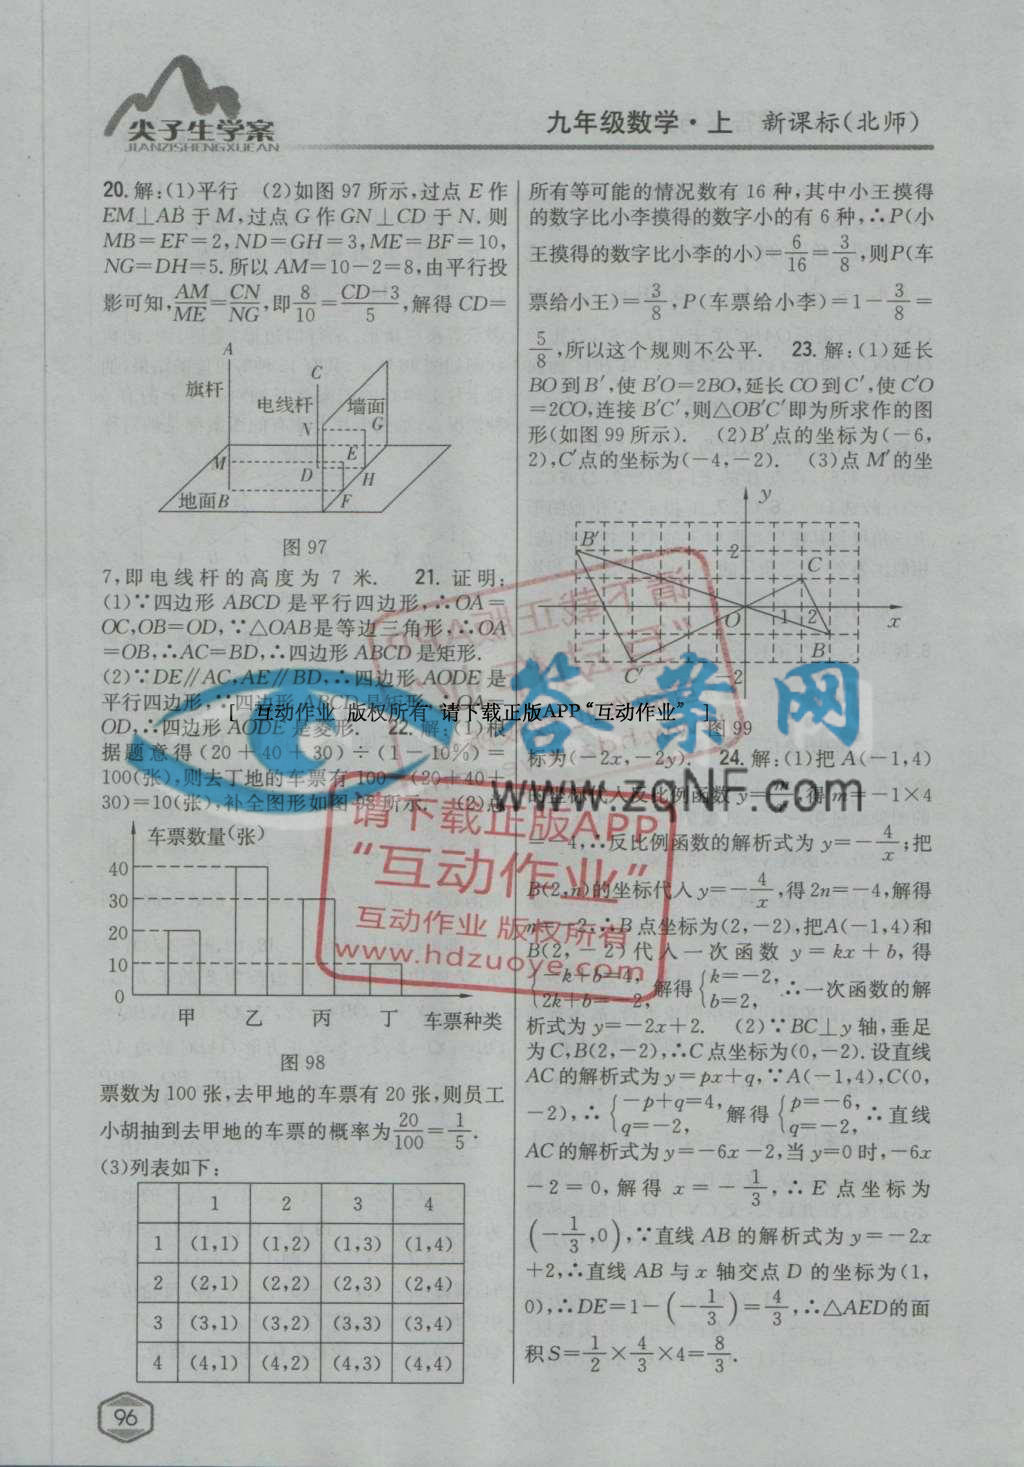 尖子生学案
JIANZISHENGXUEAN
九年级数学·上 新课标(北师)
20.解:(1)平行 (2)如图 97 所示,过点 E 作
EM⊥AB于M,过点 G 作GN⊥CD 于 N.则
MB=EF=2,ND=GH=3,ME=BF=10,
NG=DH=5.所以 AM=10-2=8,由平行投
影可知,AM/ME=CN/NG,即8/10=CD-3/5,解得 CD=
A
旗杆
C
电线杆
墙面
N
G
M
E
D
H
地面B
F
图 97
7,即电线杆的高度为 7 米. 21. 证明:
(1)∵四边形 ABCD 是平行四边形,∴OA=
OC,OB=OD,∵△OAB是等边三角形,∴OA
=OB,∴AC=BD,∴四边形 ABCD 是矩形.
(2)∵DE∥AC,AE∥BD,∴四边形 AODE 是
平行四边形,∵四边形 ABCD 是矩形,∴OA=
OD,∴四边形 AODE 是菱形. 22. 解:(1)根
据题意得(20+40+30)÷(1-10%)=
100(张),则去丁地的车票有 100-(20+40+
30)=10(张),补全图形如图 98 所示. (2)总
车票数量(张)
40
30
20
10
0
甲 乙 丙 丁 车票种类
图 98
票数为 100 张,去甲地的车票有 20 张,则员工
小胡抽到去甲地的车票的概率为20/100=1/5.
(3)列表如下:
1 2 3 4
1 (1,1) (1,2) (1,3) (1,4)
2 (2,1) (2,2) (2,3) (2,4)
3 (3,1) (3,2) (3,3) (3,4)
4 (4,1) (4,2) (4,3) (4,4)
96
所有等可能的情况数有 16 种,其中小王摸得
的数字比小李摸得的数字小的有 6 种,∴P(小
王摸得的数字比小李的小)=6/16=3/8,则P(车
票给小王)=3/8,P(车票给小李)=1-3/8=
5/8,所以这个规则不公平. 23. 解:(1)延长
BO到B′,使B′O=2BO,延长CO到C′,使C′O
=2CO,连接B′C′,则△OB′C′即为所求作的图
形(如图 99 所示). (2)B′点的坐标为(-6,
2),C′点的坐标为(-4,-2). (3)点 M′的坐
y
B′
2
C
O
1
2
x
B
C′
-2
图 99
标为(-2x,-2y). 24. 解:(1)把 A(-1,4)
的坐标代入反比例函数 y=m/x,得 m=-1×4
=-4,∴反比例函数的解析式为 y=-4/x;把
B(2,n)的坐标代入 y=-4/x,得2n=-4,解得
n=-2,∴B 点坐标为(2,-2),把A(-1,4)和
B(2,-2)代入一次函数 y=kx+b,得
{-k+b=4, 2k+b=-2, 解得{k=-2, b=2, ∴一次函数的解
析式为 y=-2x+2. (2)∵BC⊥y 轴,垂足
为 C,B(2,-2),∴C点坐标为(0,-2).设直线
AC的解析式为y=px+q,∵A(-1,4),C(0,
-2),∴{-p+q=4, q=-2, 解得{p=-6, q=-2, ∴直线
AC的解析式为y=-6x-2,当y=0时,-6x
-2=0,解得 x=-1/3,∴E 点坐标为
(-1/3,0),∵直线 AB 的解析式为 y=-2x
+2,∴直线 AB 与 x 轴交点 D 的坐标为(1,
0),∴DE=1-(-1/3)=4/3,∴△AED的面
积S=1/2×4/3×4=8/3.
[ 互动作业 版权所有 请下载正版APP“互动作业” ]
答案网
www.zqNF.com
请下载正版APP
“互动作业”
互动作业 版权所有
www.hdzuoye.com